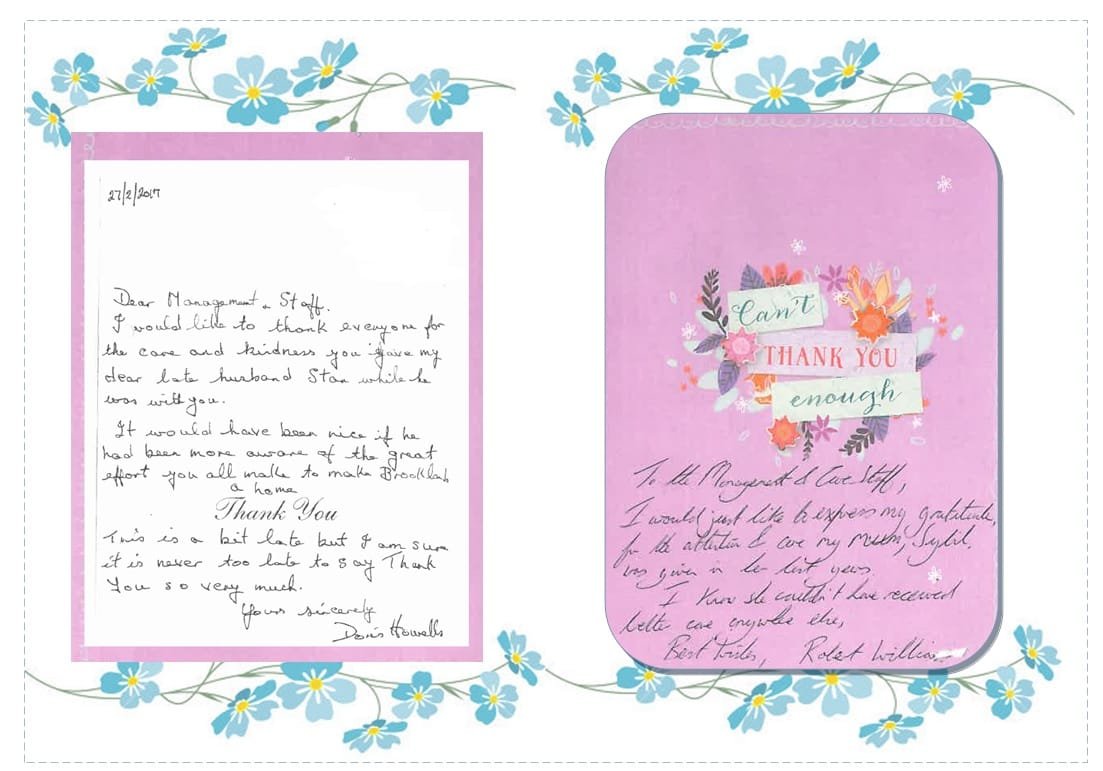 27/2/2017
Dear Management & Staff.
I would like to thank everyone for
the care and kindness you gave my
dear late husband Stan while he
was with you.
It would have been nice if he
had been more aware of the great
effort you all make to make
a home
Thank You
This is a bit late but I am sure
it is never too late to say Thank
You so very much.
Yours sincerely
Doris Howells
Can't
THANK YOU
enough
To the Management & Care Staff,
I would just like to express my gratitude,
for the attention & care my mum, Sybil.
was given in her last years.
I know she couldn't have received
better care anywhere else,
Best Wishes, Robert